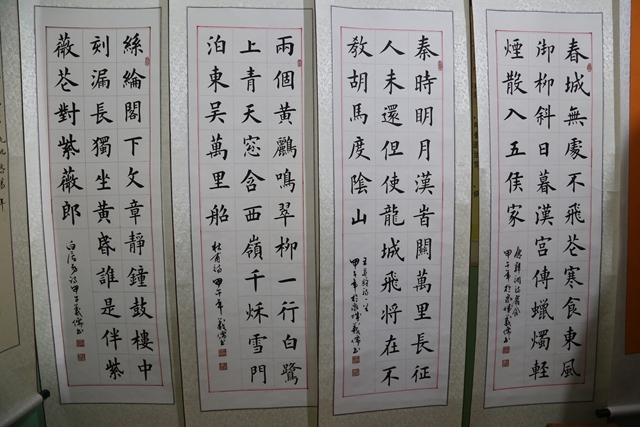 春城無處不飛花寒食東風
御柳斜日暮漢宮傳蠟燭輕
煙散入五侯家
秦時明月漢旹關萬里長征
人未還但使龍城飛將在不
教胡馬度陰山
王昌齡詩一首
兩個黃鸝鳴翠柳一行白鷺
上青天窓含西嶺千秌雪門
泊東吳萬里船
杜甫詩 甲午年 義儒書
絲綸閣下文章靜鐘鼓樓中
刻漏長獨坐黃昏誰是伴紫
薇花對紫薇郎
白居易詩甲午義儒書